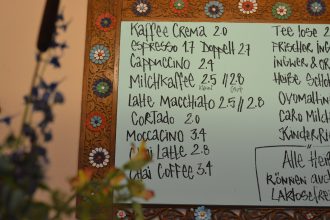 Kaffee Crema 2.0
Espresso 1.7 Doppelt 2.7
Cappuccino 2.4
Milchkaffee 2.5 // 2.8
Latte Macchiato 2.5 // 2.8
Cortado 2.0
Moccacino 3.4
Latte 2.8
Chai Coffee 3.4
Tee lose
Frischer
Ingwer &
Heiße
Ovomaltine
Caro Milch
Kinder
Alle Hei
können auch
Laktosefrei